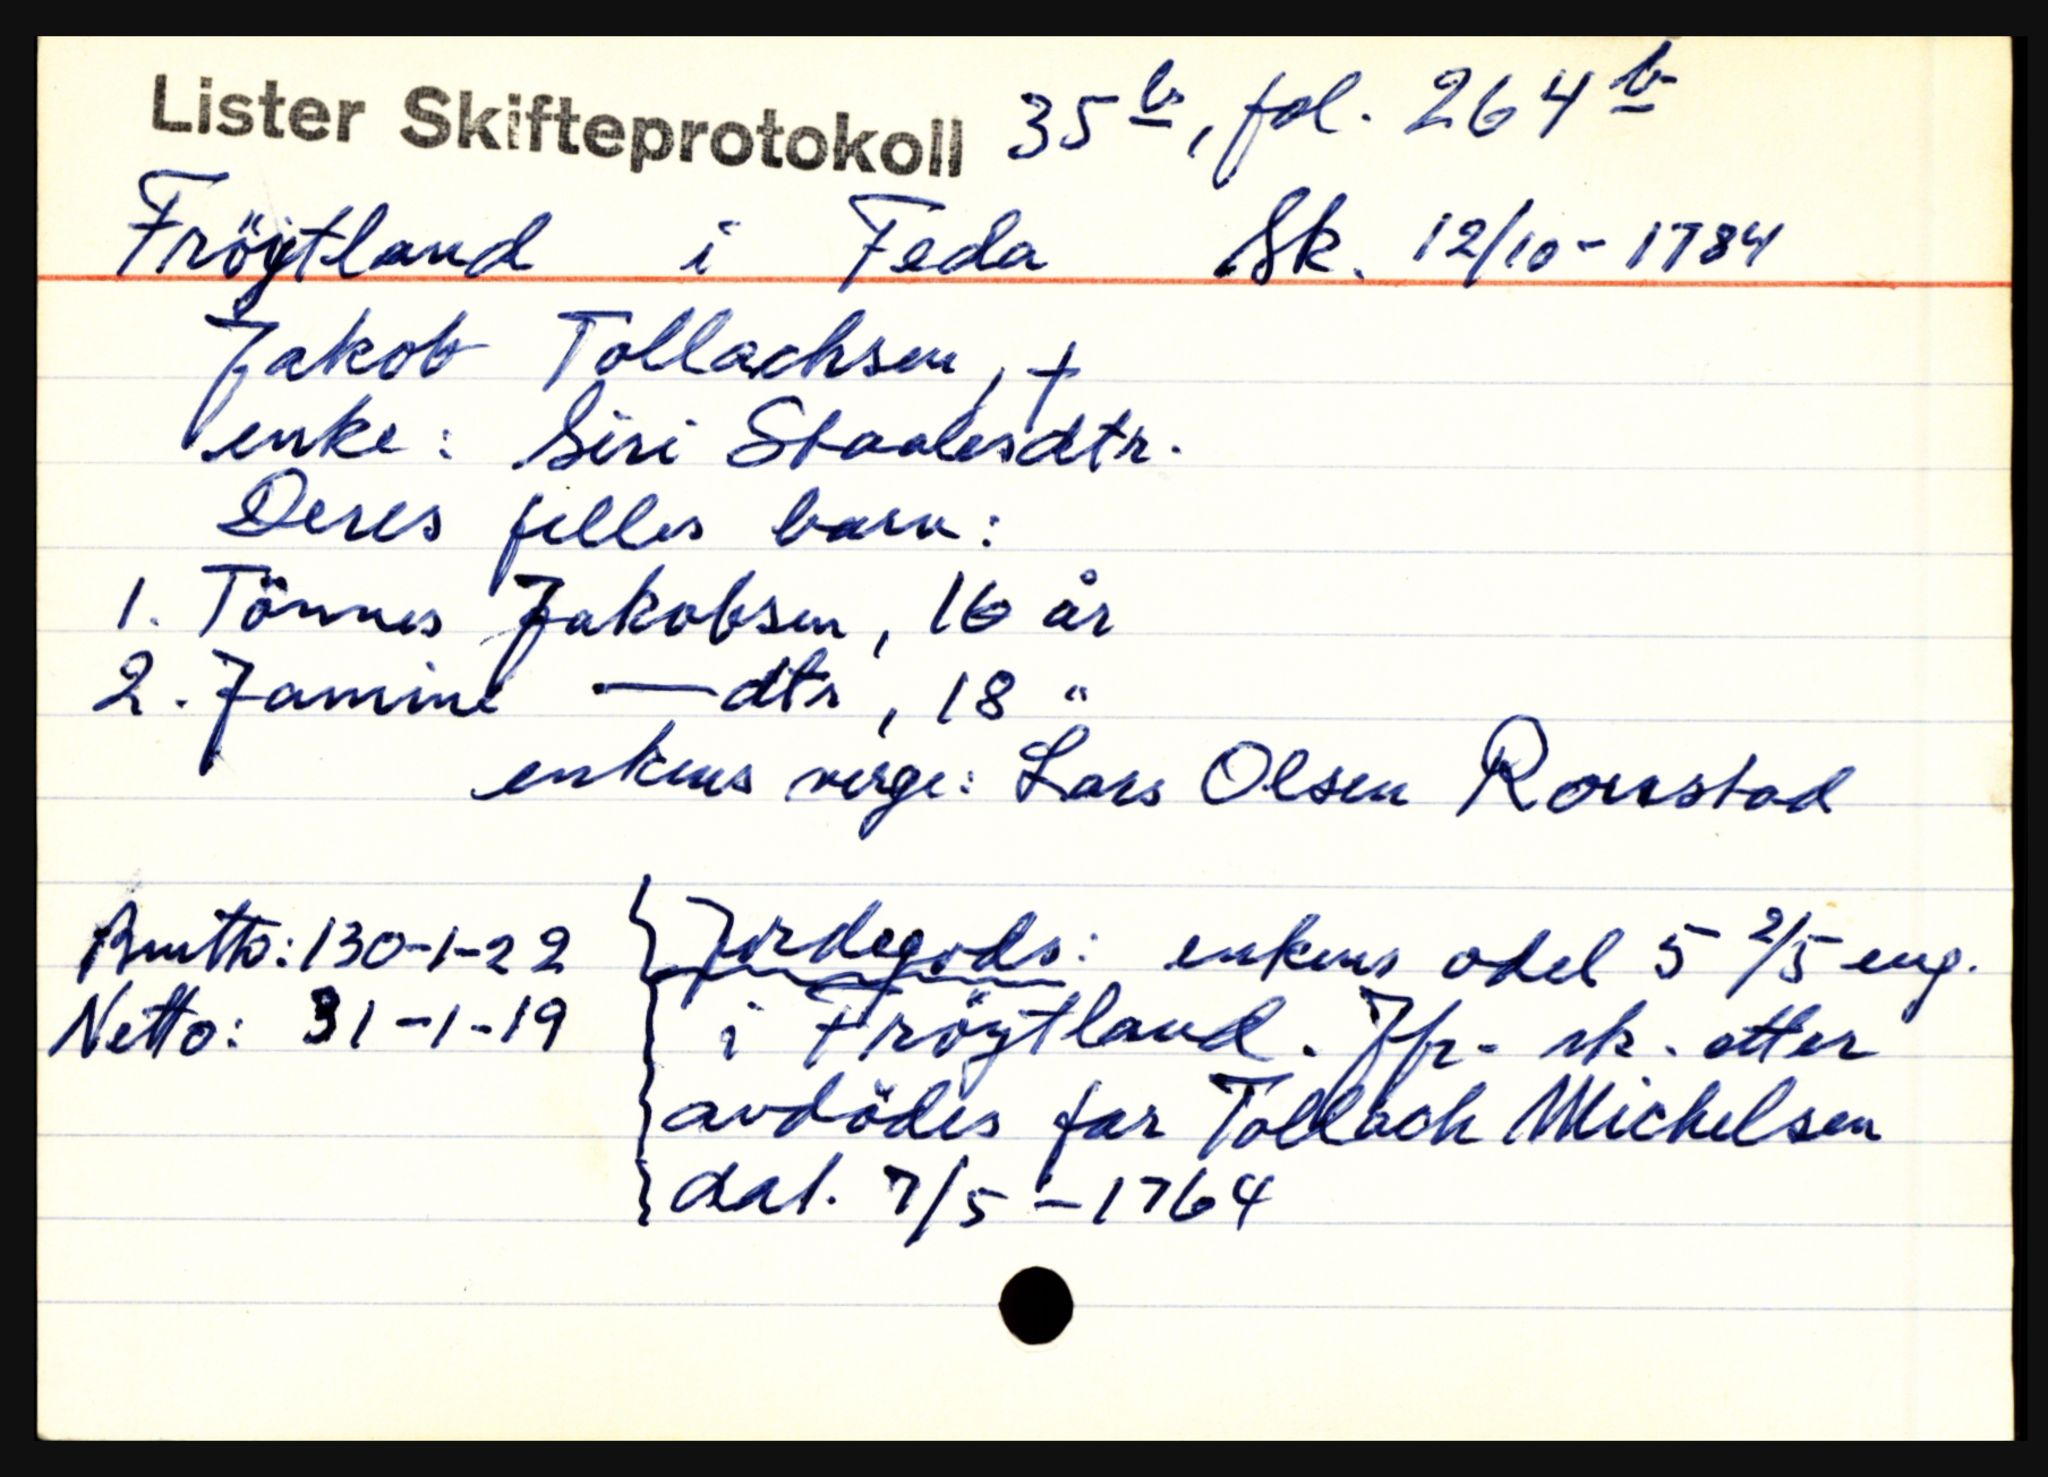 Lister Skifteprotokoll 35b, fol. 264b
Fröytland i Feda Sk. 12/10-1784
Jakob Tollachsen, +
enke: Siri Staalesdtr.
Deres felles barn:
1. Tönnes Jakobsen, 16 år
2. Jamine — dtr, 18 "
enkens verge: Lars Olsen Rorstad
Brutto: 130-1-22
Netto: 31-1-19
Jordegods: enkens odel 5 2/5 eng.
i Fröytland. Jfr. sk. etter
avdödes far Tollach Michelsen
dat. 7/5-1764